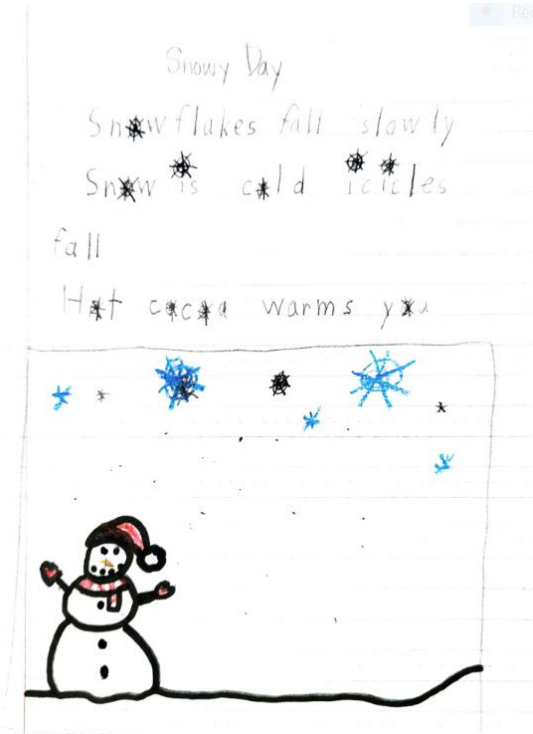 Snowy Day
Snowflakes fall slowly
Snow is cold icicles
fall
Hot cocoa warms you